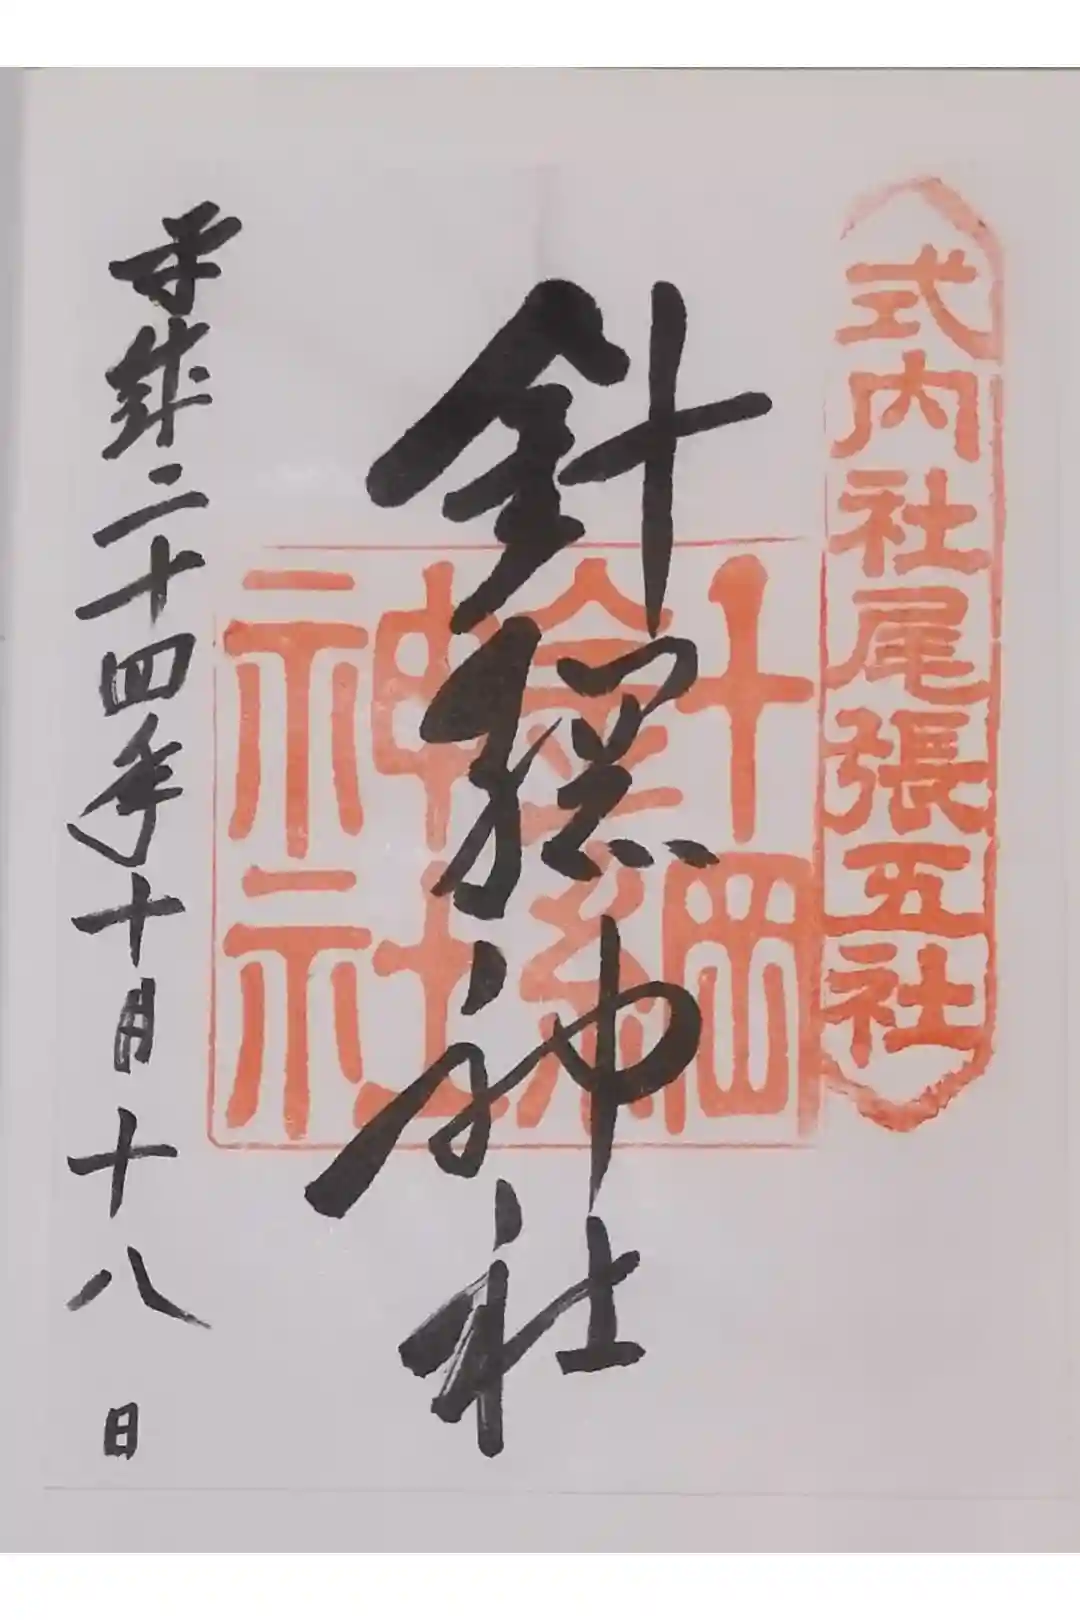 式内社尾張五社
針綱神社
針綱神社
平成二十四年十月十八日